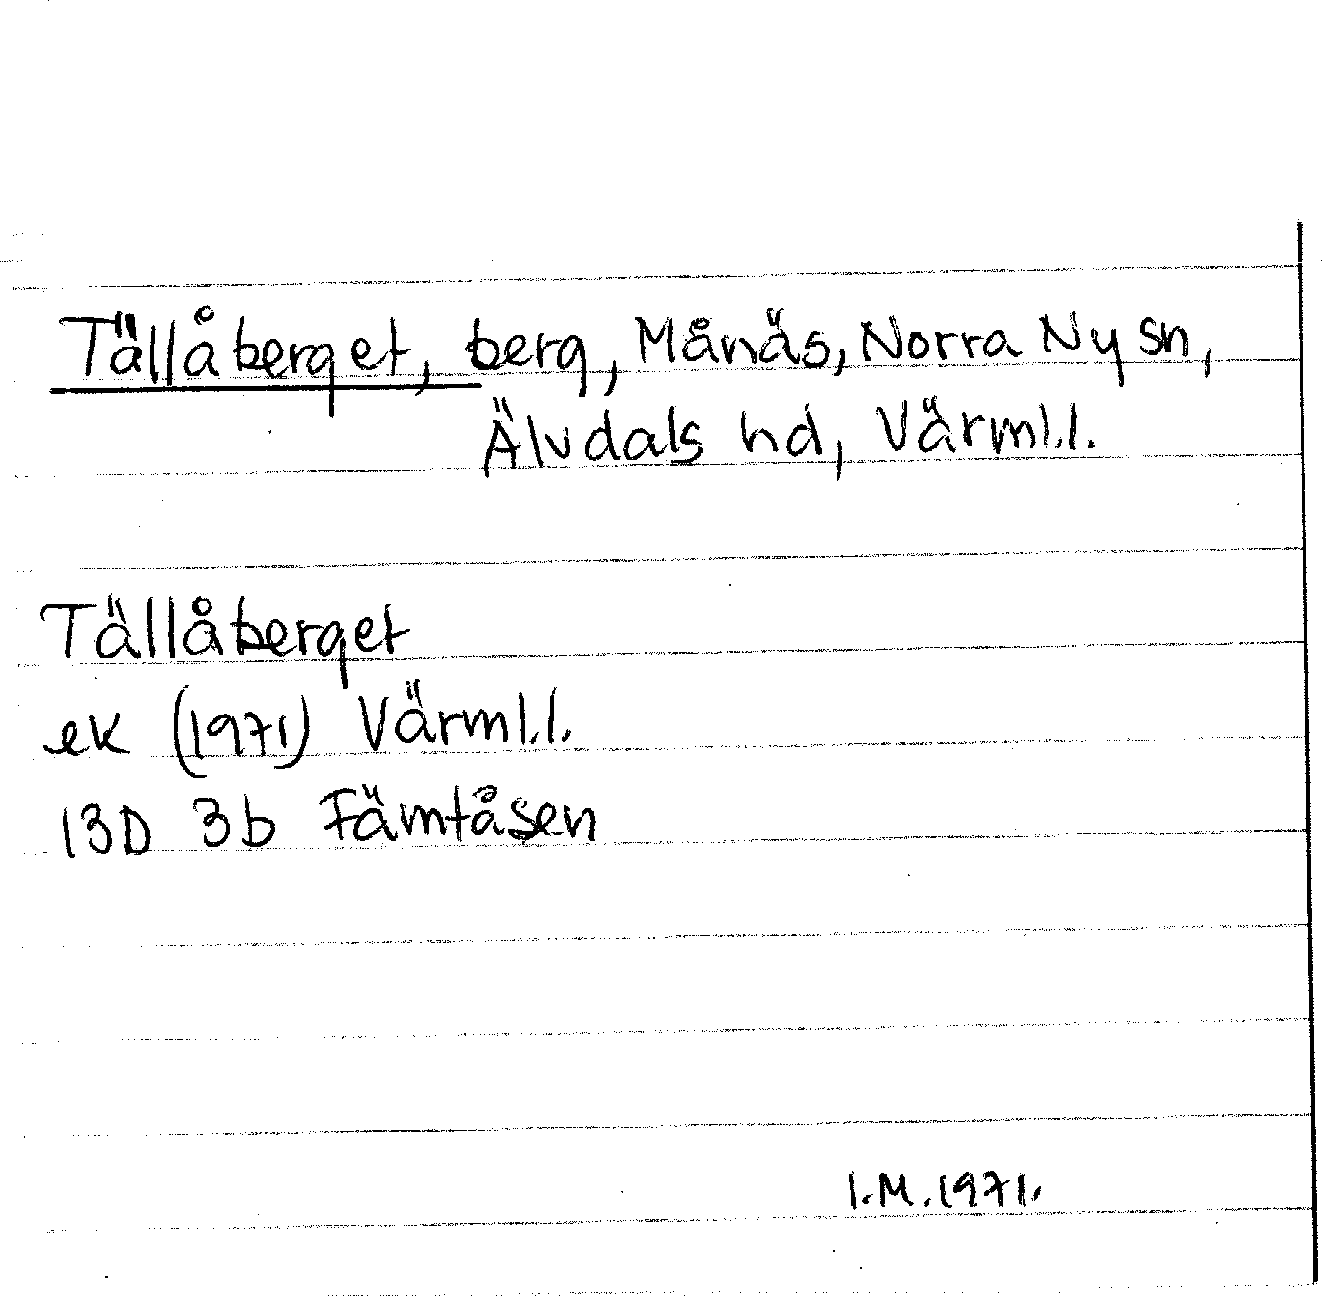 Tällåberget, berg, Månäs, Norra Ny sn,
Älvdals hd, Värml.l.
Tällåberget
ek (1971) Värml.l.
13D 3b Fämtåsen
I.M. 1971.